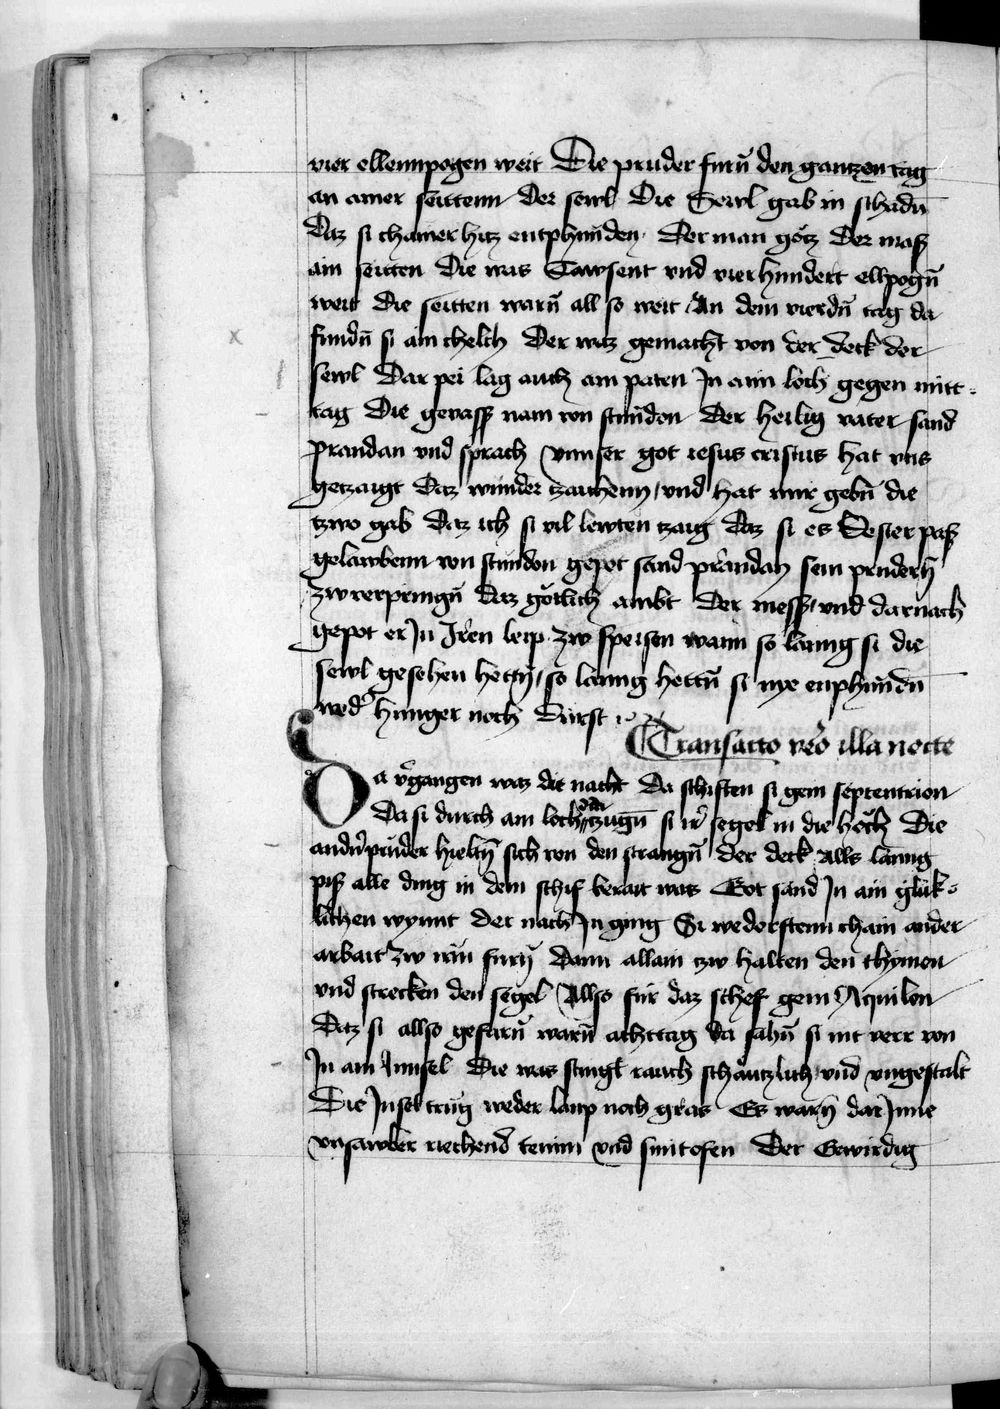 vier ellennpogen weit Die pruder furn̄ den gantzen tag
an ainer seittenn Der sewl Die Sewl gab in schadn̄
Daz si chainer hitz entphunden Der man gotz Der mass
ain seitten Die was Tawsent vnd vier hundert ellpogn̄
weit Die seitten warn̄ all so weit An dem vierdn̄ tag da
fundn̄ si ain chelch Der waz gemacht von der deck der
sewl Dar pei lag auch ain paten In aim loch gegen mitt-
tag Die gevass nam von stunden der heilig vater sand
prandan vnd sprach vnnser got iesus cristus hat vns
getzaigt Daz wunder tzaichenn vnd hat mir gebn̄ die
tzwo gab Daz ich si vil lewten tzaig Daz si es Dester pass
gelawbenn von stundon gepot sand prandan sein prudern̄
zw verpringn̄ Daz gotlich ambt Der mess vnd darnach
gepot er In Iren leip zw speisen wann so lanng si die
sewl gesehen hettn̄ so lanng hettn̄ si nye enphundn̄
weder hunger noch Durst
Transacto vero illa nocte
Da vergangen waz die nacht Da schiften si gein septentrion
Da si durch ain loch tzugn̄ si ir segel in die hoch Die
andern pruder hieltn̄ sich von den strangn̄ der deck Alls lanng
piss alle ding in dem schif berait was Got sand In ain gluk-
lichen wynnt der nach In ging Si wederstenn chain ander
arbait zw irm furn̄ Dann allain zw halten den thymon
vnd strecken den segel Allso fur daz schef gein Aquilon
Daz si allso gefarn̄ warn̄ achttag Da sahn̄ si nit verr von
In ain Innsel Die was stingl rauch schawtzlich vnd vngestalt
Die Insel trug weder lanp noch gras Es warn̄ dar Inne
vnsawber riechend tenim vnd smitofen Der Gewirdig